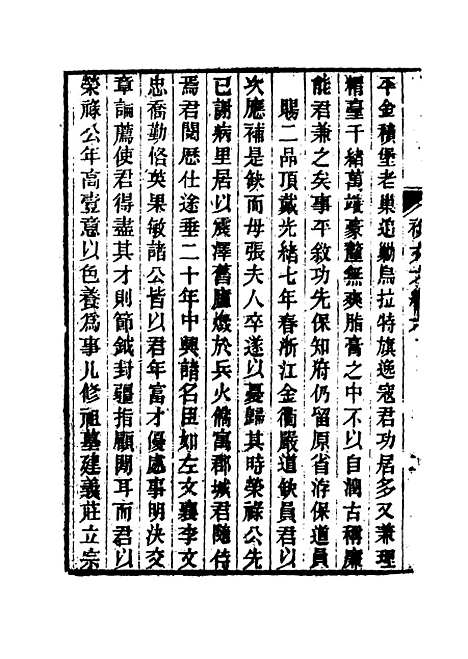 平金積堡老巢追勦烏拉特旗逸寇君功居多又兼理
精臺千緒萬端豪釐無爽脂膏之中不以自潤古稱廉
能君兼之矣事平敘功先保知府仍留原省洊保道員
賜二品頂戴光緒七年春浙江金衢嚴道飲員君以
次應補是缺而母張夫人卒遂以憂歸其時榮祿公先
已謝病里居以震澤舊廬燬於兵火僑寓郡城君隨侍
焉君閱歷仕途垂二十年中興諸名臣如左文襄李文
忠喬勤恪英果敏諸公皆以君年富才優處事明決交
章論薦使君得盡其才則節鉞封疆指顧間耳而君以
榮祿公年高壹意以色養為事凡修祖墓建義莊立宗